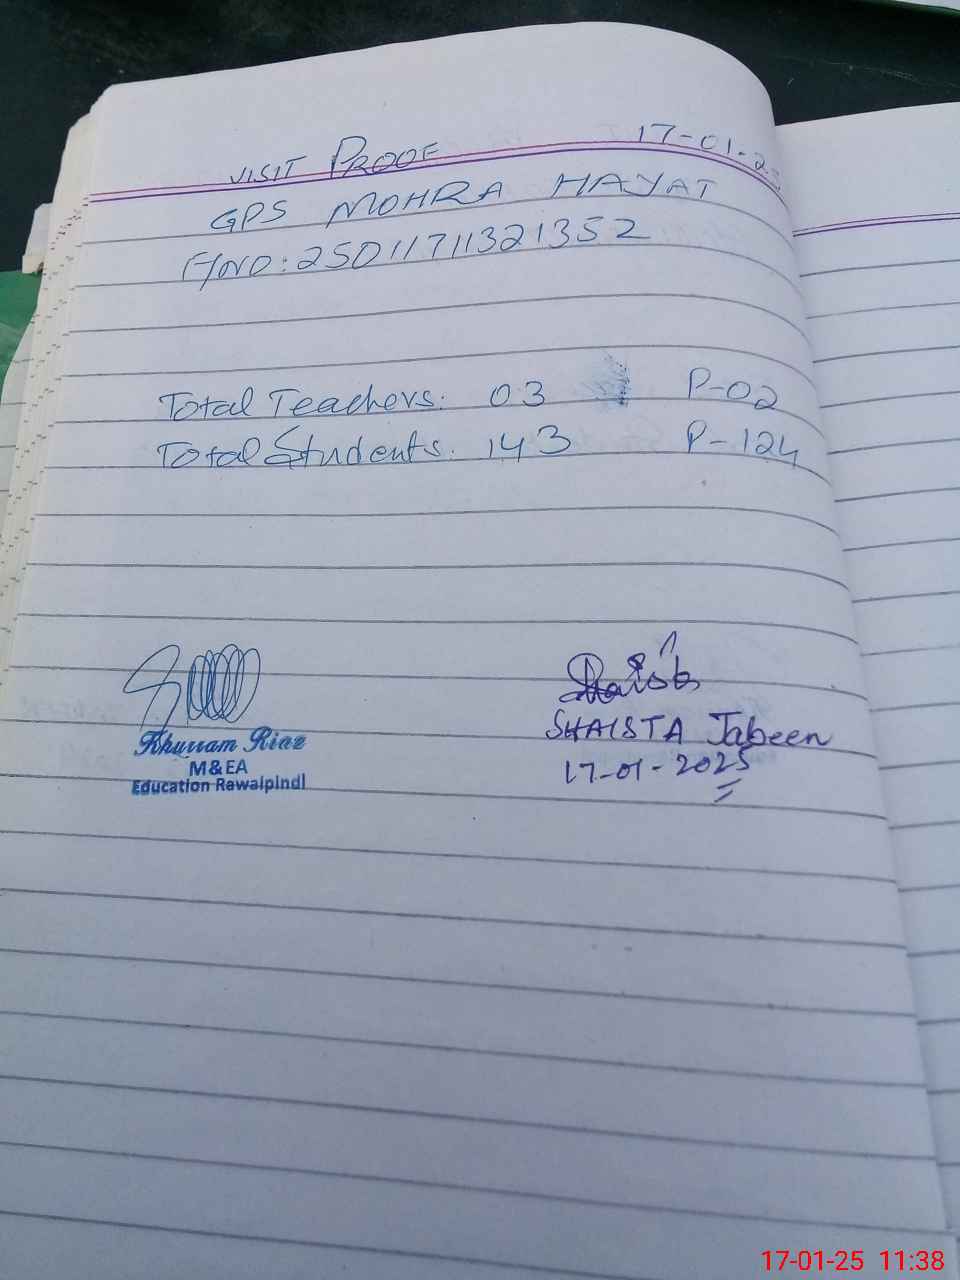 VISIT PROOF 17-01-25
GPS MOHRA HAYAT
F/NO: 25011711321352
Total Teachers. 03 P-02
Total Students. 143 P-124
Khurram Riaz
M&EA
Education Rawalpindi
SHAISTA Jabeen
17-01-2025
17-01-25 11:38